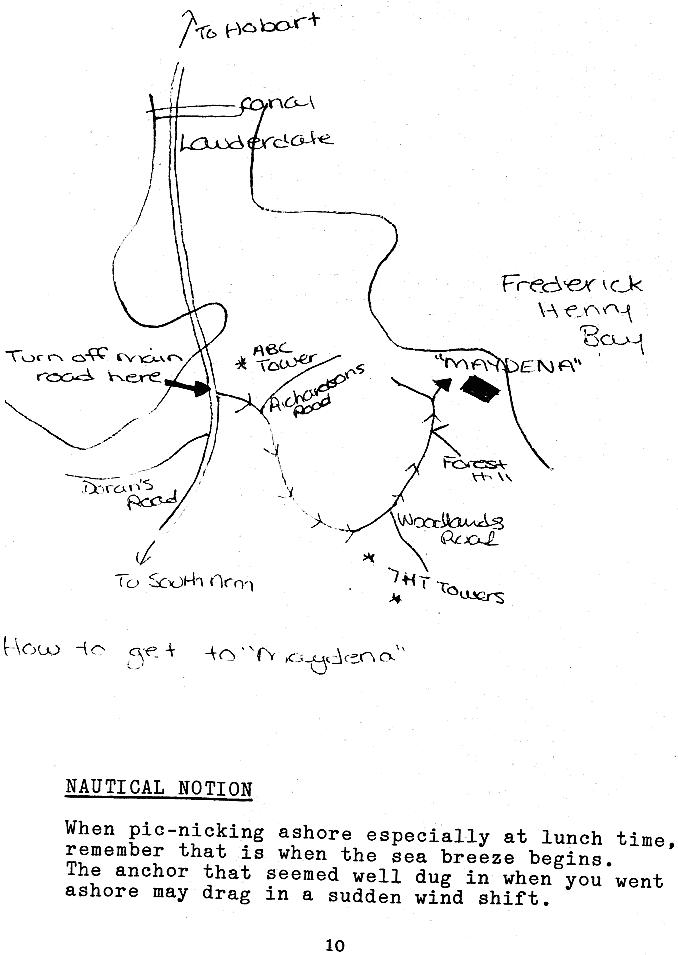 To Hobart
Canal
Lauderdale
Frederick
Henry
Bay
Turn off main
road here
ABC
Tower
Richardsons
Road
"MAYDENA"
Doran's
Road
Forest
Hill
Woodlands
Road
7HT Towers
To South Arm
How to get to "Maydena"
NAUTICAL NOTION
When pic-nicking ashore especially at lunch time,
remember that is when the sea breeze begins.
The anchor that seemed well dug in when you went
ashore may drag in a sudden wind shift.
10